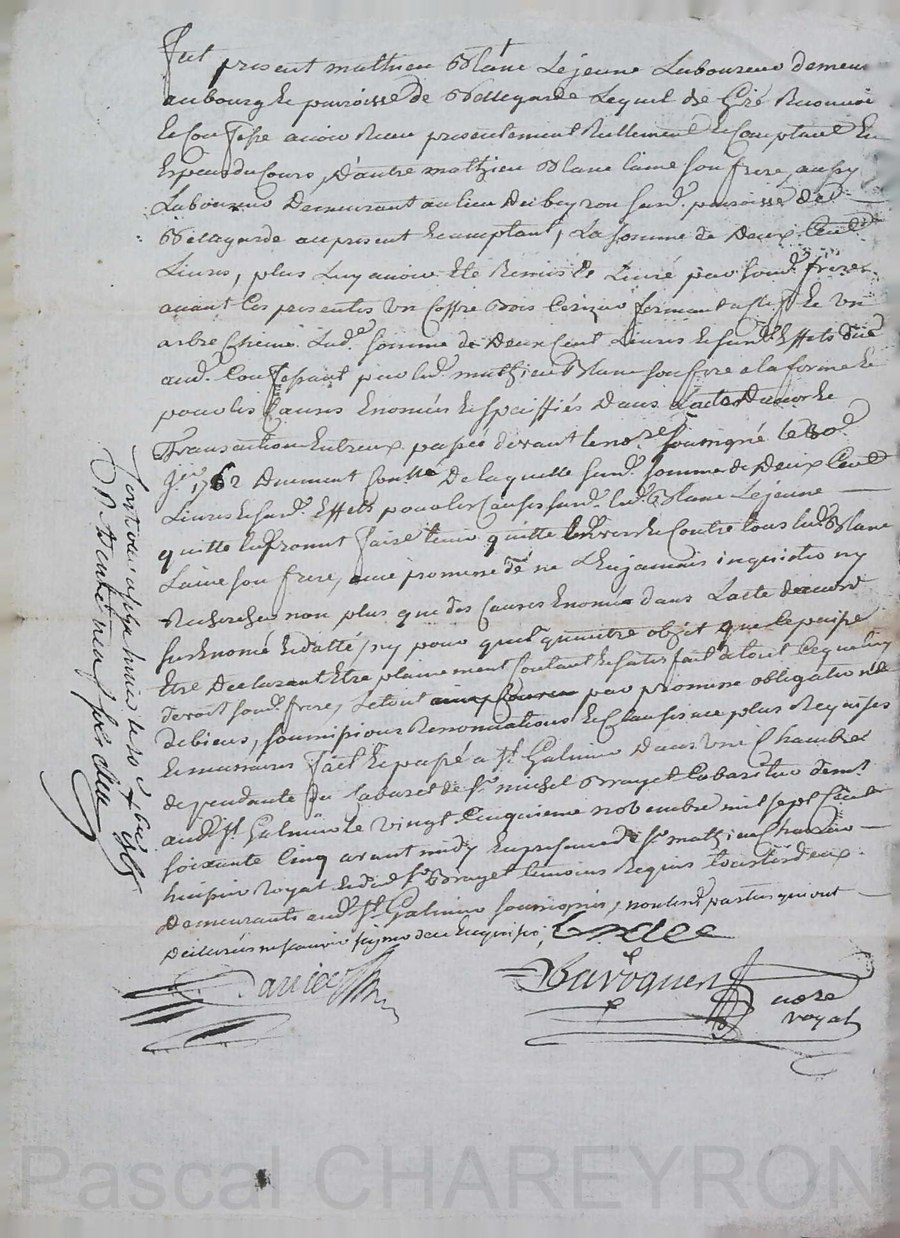 Fut present mathieu Blanc Lejeune Laboureur demeu
au bourg & paroisse de Bellegarde Lequel de Gré Reconnoi
& Confesse avoir Recu presentement Reellement & Comptant En
Especes du Cours, D'autre mathieu Blanc Laine son frere, aussy
Laboureur Demeurant au lieu Dei beyron surd. paroisse de
Bellegarde au present & acceptant, La somme de Deux Cent
Livres, plus Luy avoir Eté Remis & Livré par sond. frere
avant Ces presentes Un Coffre Bois Cerizier fermant a Clef & Un
arbre Chene. Lad. somme de Deux Cent Livres & surd. Effets
aud. Confessant par led. mathieu Blanc son frere a la forme &
pour les Causes Enoncées & Speciffiés Dans L'acte D'accord &
Transaction Entreux passé devant le no.re soussigné le 30e
Jer. 1762 Duement De laquelle surd. somme de Deux Cent
Livres & surd. Effets pour les Causes surd. led. Blanc Lejeune
quitte & promet faire tenir quitte Envers & Contre tous led. Blanc
Laine son frere, avec promesse de ne L'En jamais inquietter ny
Rechercher non plus que des Causes Enoncées dans L'acte d'accord
surs Enoncé & datté, ny pour quelquautre objet que Ce puisse
Etre Declarant Etre plainement Content & Satisfait a tout Ce que luy
devoit sond. frere, Le tout par promesse obligation de
de biens, soumissions Renonciations & Clauses a ce plus Requises
& necessaires fait & passé a St. Galmier Dans Une Chambre
dependante du Cabaret de Sr. michel Brayet Cabaretier dem.t
aud. St. Galmier le vingt Cinquieme novembre mil sept Cent
soixante Cinq avant midy En presence de Sr. mathieu
huissier Royal & dud. Sr. Brayet temoins Requis tous les deux
Demeurants aud. St. Galmier soussignés, non lesd. parties qui ont
Declarés ne scavoir signer de ce Enquis
no.re
royal
Pascal CHAREYRON